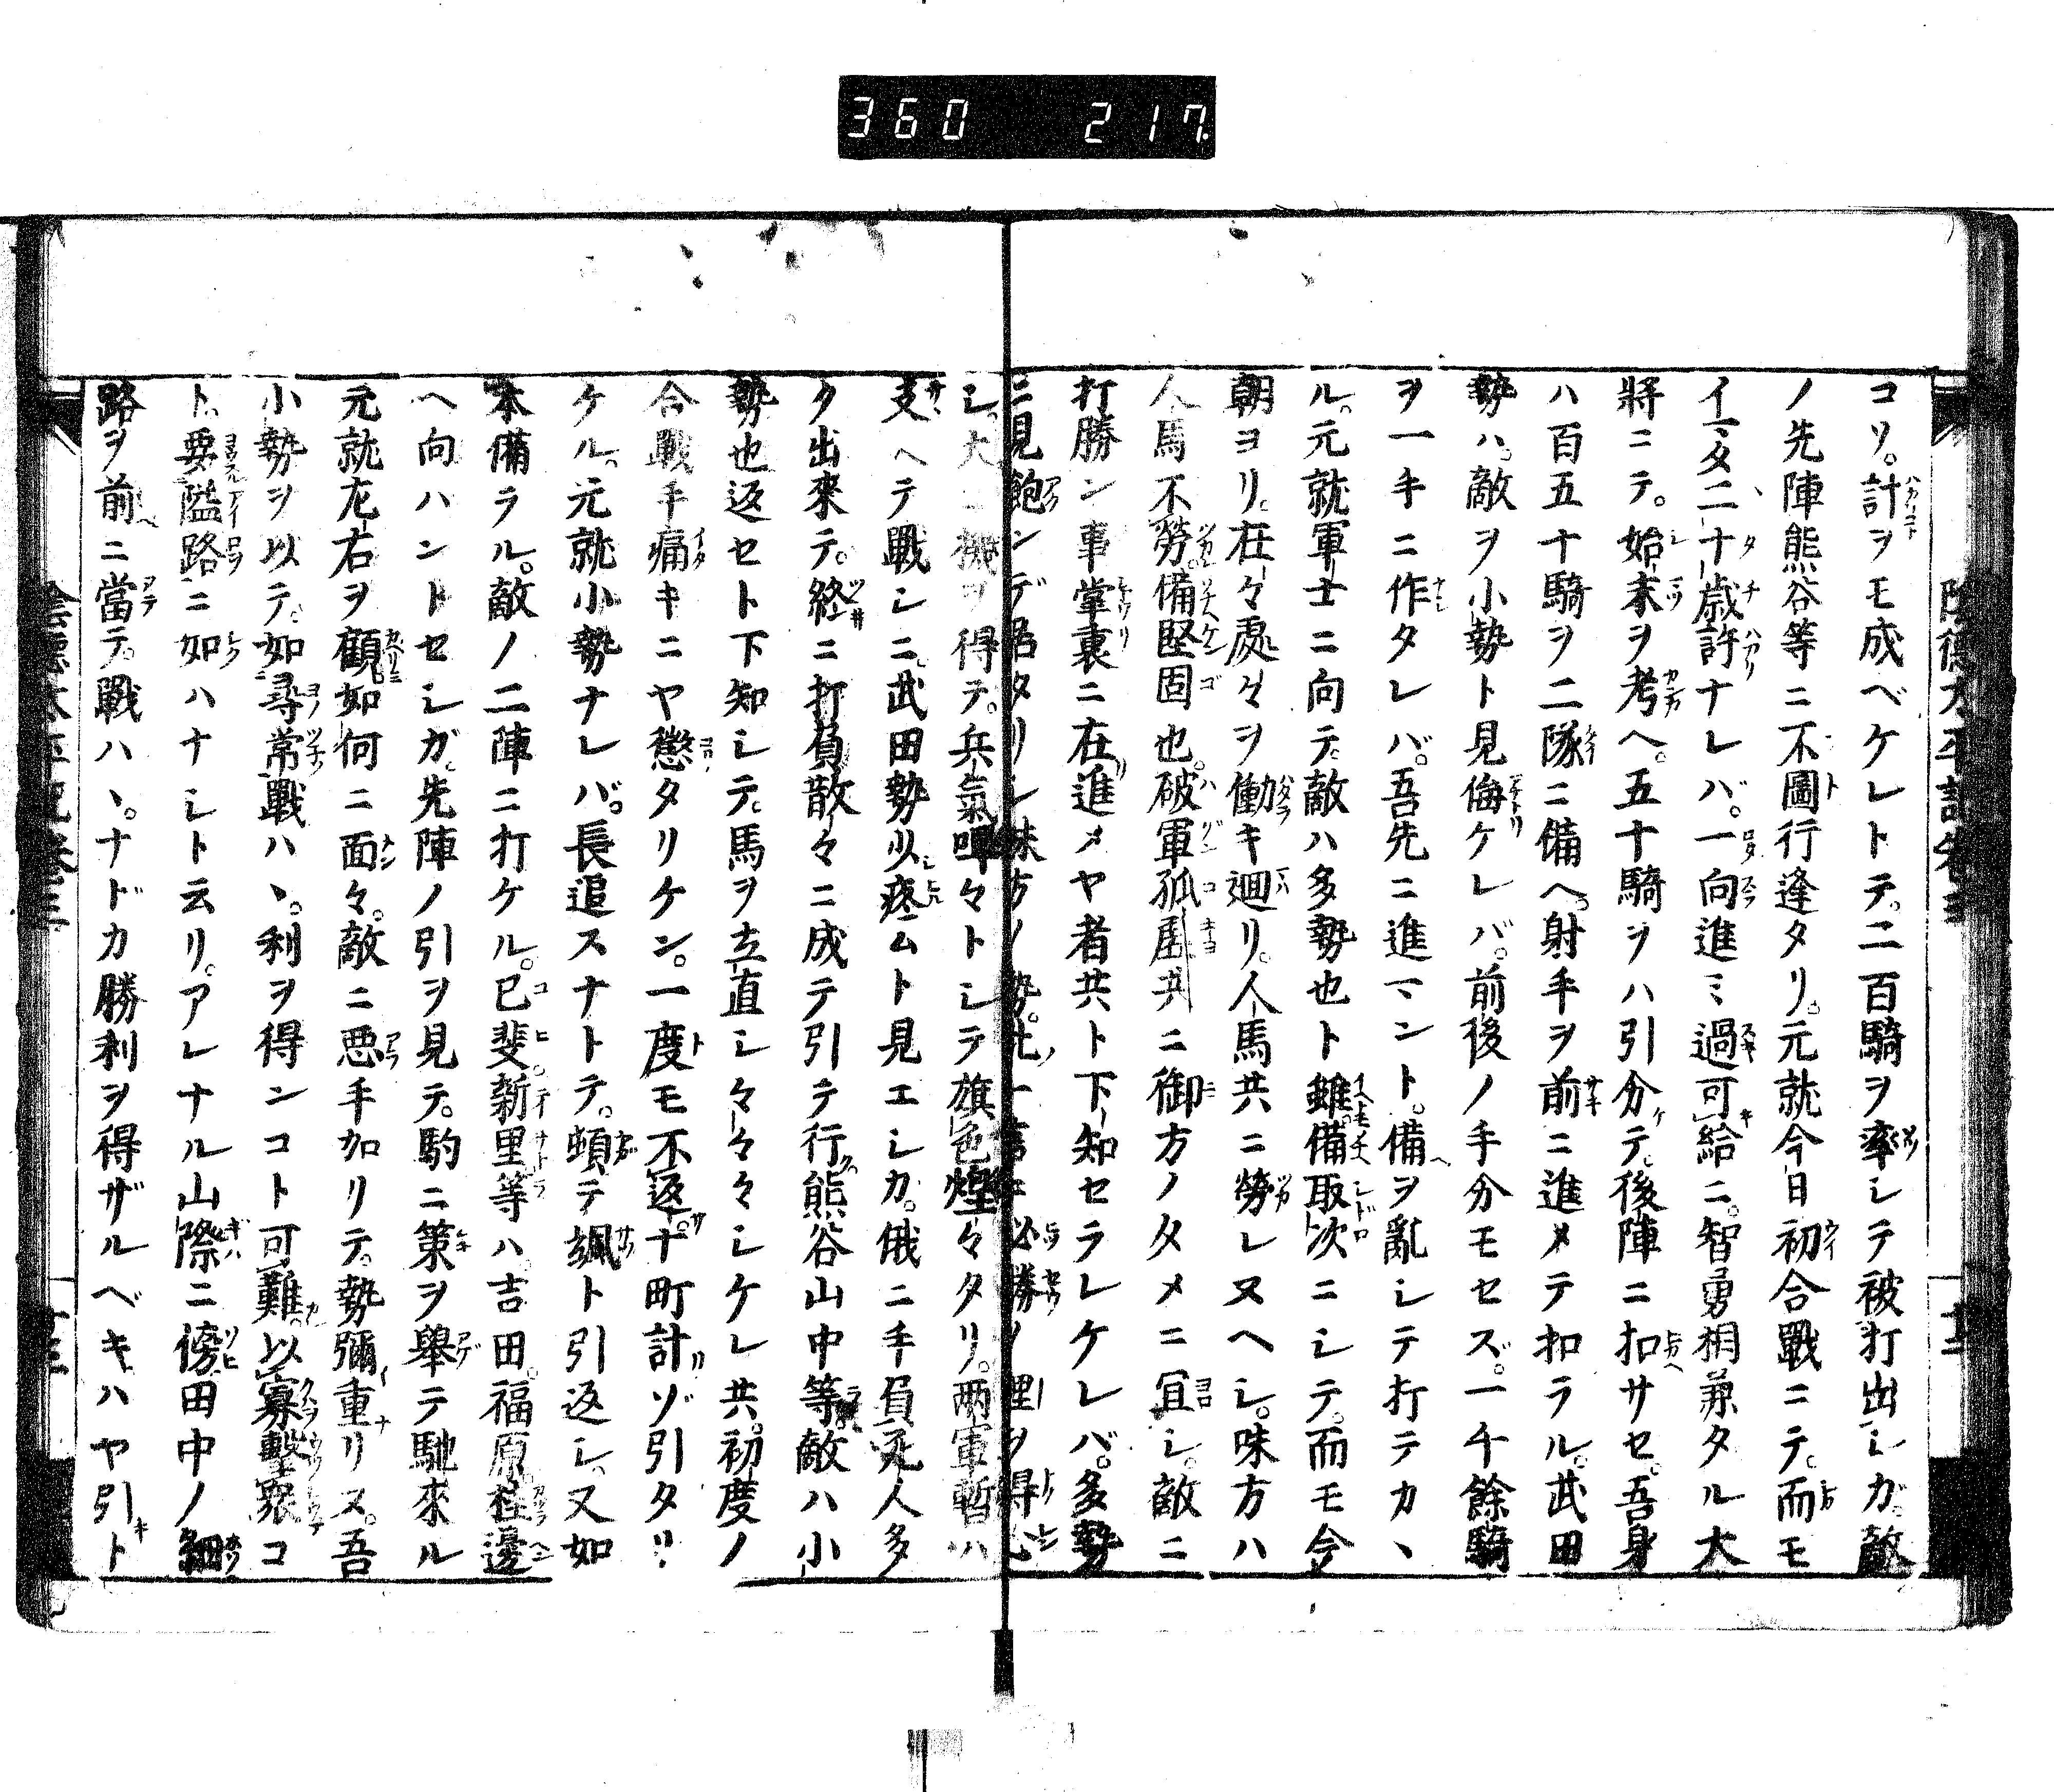 360 217
陰徳太平記巻三
コリ。計ヲモ成ベケレトテ。二百騎ヲ率シテ被打出シカ。敵
ノ先陣熊谷等ニ不圖行逢タリ。元就今日初合戰ニテ。而モ
イマタ二十歳許ナレバ。一向進ミ過可給ニ。智勇相兼タル大
將ニテ。始末ヲ考ヘ。五十騎ヲハ引分テ後陣ニ扣サセ。吾身
ハ百五十騎ヲ二隊ニ備ヘ。射手ヲ前ニ進メテ扣ラル。武田
勢ハ。敵ヲ小勢ト見侮ケレバ。前後ノ手分モセズ。一千餘騎
ヲ一手ニ作タレバ。吾先ニ進マント。備ヲ亂シテ打テカヽ
ル。元就軍士ニ向テ。敵ハ多勢也ト雖。備取次ニシテ。而モ今
朝ヨリ。在々處々ヲ働キ廻リ。人馬共ニ勞レヌヘシ。味方ハ
人馬不勞。備堅固也。破軍孤虚共ニ御方ノタメニ宜シ。敵ニ
打勝ン事掌裏ニ在進メヤ者共ト下知セラレケレバ。多勢
ニ見飽ンデ居タリシ味方ノ勢。此一言ニ必勝ノ理ヲ得心
シ。大ニ機ヲ得テ。兵氣暉々トシテ旗色煌々タリ。两軍暫ハ
支ヘテ戰シニ。武田勢少疼ムト見エシカ。俄ニ手負死人多
ク出來テ。終ニ打負散々ニ成テ引テ行熊谷山中等。敵ハ小
勢也返セト下知シテ。馬ヲ立直シ々々々シケレ共。初度ノ
合戰手痛キニヤ懲タリケン。一度モ不返。十町計ゾ引タリ
ケル。元就小勢ナレバ。長追スナトテ。頓テ颯ト引返シ。又如
本備ラル。敵ノ二陣ニ打ケル。己斐新里等ハ。吉田。福原。桂邊
ヘ向ハントセシガ。先陣ノ引ヲ見テ。駒ニ策ヲ舉テ馳來ル
元就左右ヲ顧如何ニ面々。敵ニ悪手加リテ。勢彌重リヌ。吾
小勢ヲ以テ。如尋常戰ハヽ。利ヲ得ンコト可難。以寡撃衆コ
ト。要隘路ニ如ハナシト云リ。アレナル山際ニ傍田中ノ細
路ヲ前ニ當テ。戰ハヽ。ナドカ勝利ヲ得ザルベキ。ハヤ引ト